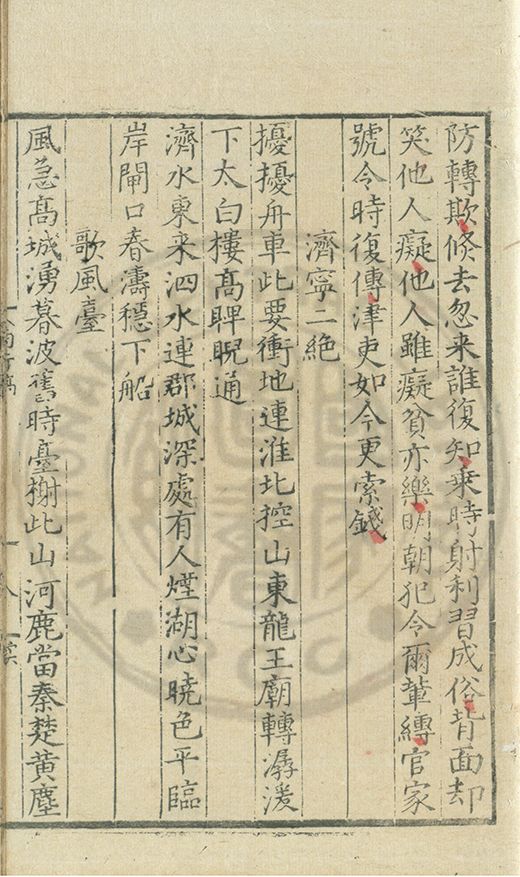 防轉欺倏去忽来誰復知乗時射利習成俗背面却
笑他人癡他人雖癡貧亦樂明朝犯令爾輩縳官家
號令時復傳津吏如今更索錢
濟寧二絶
擾擾舟車此要衝地連淮北控山東龍王廟轉潺湲
下太白樓髙睥睨通
濟水東来泗水連郡城深處有人煙湖心曉色平臨
岸閘口春濤穩下船
歌風臺
風急髙城湧暮波舊時臺榭此山河鹿當秦楚黄塵